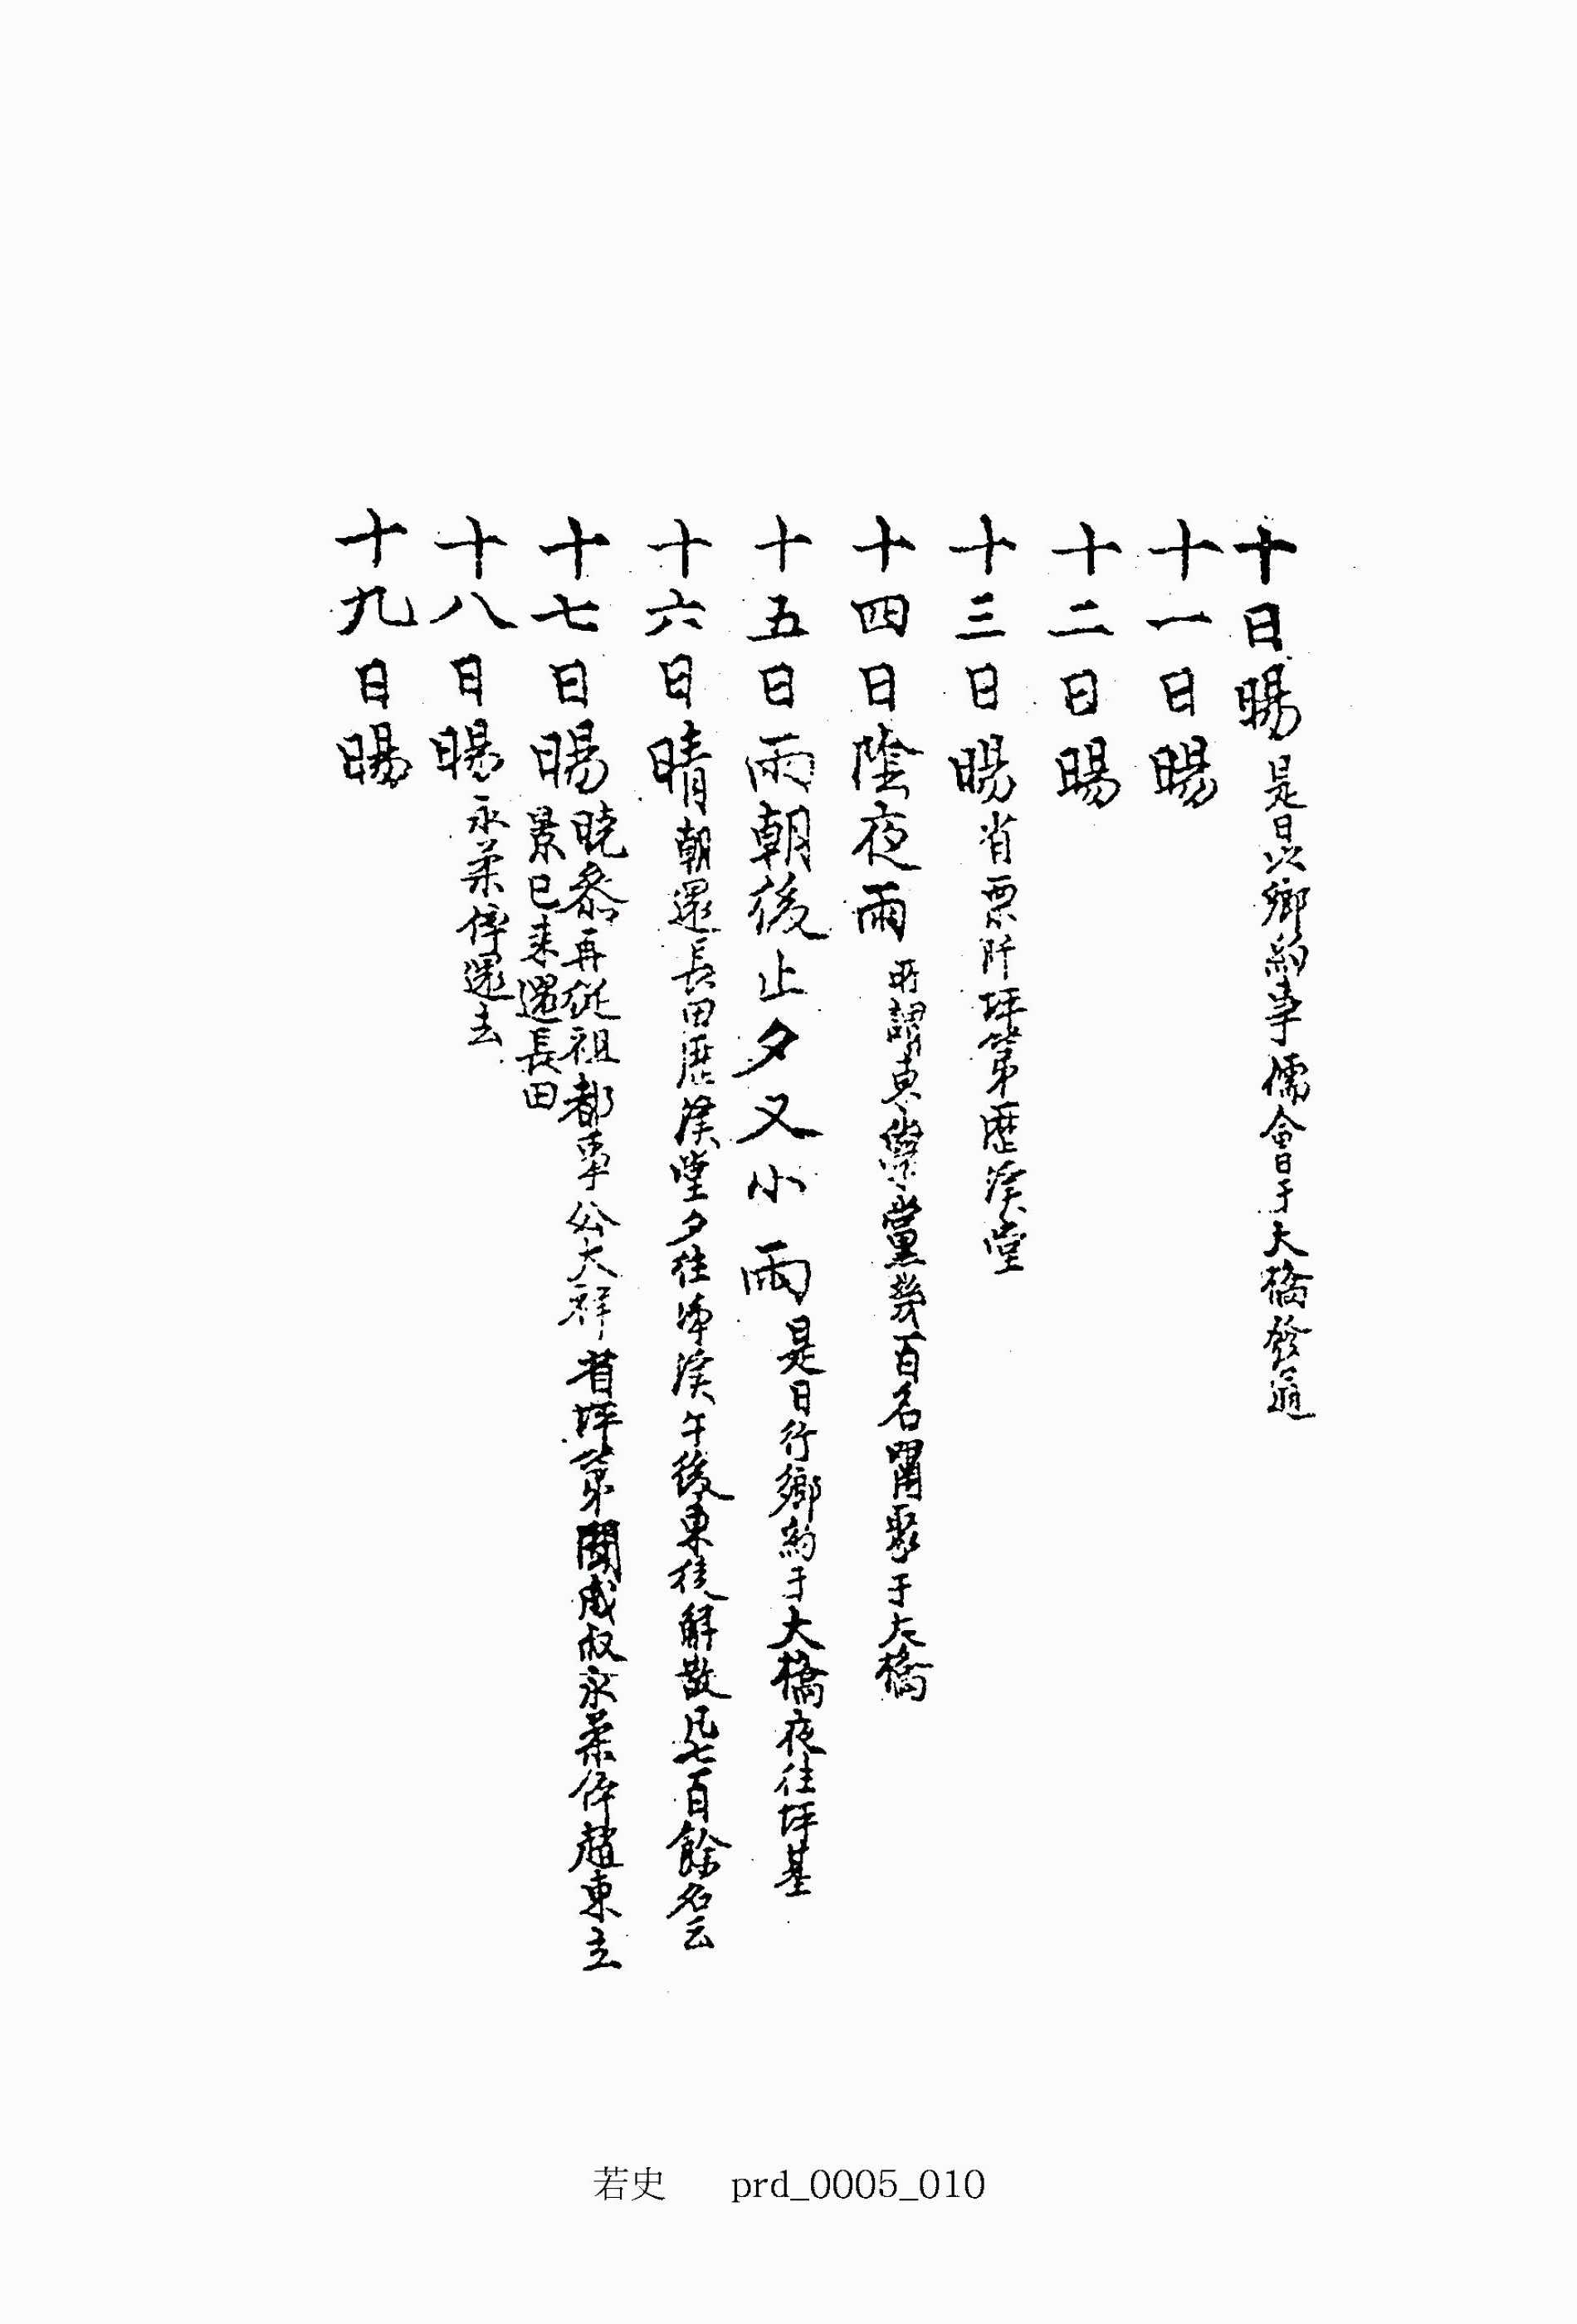 十日暘 是日以鄕約事儒會于大橋發通
十一日暘
十二日暘
十三日暘 省票阡坪第歷渓堂
十四日陰夜雨 所謂東學黨幾百名胃聚于大橋
十五日雨朝後止夕又小雨 是日行鄕約于大橋夜往坪基
十六日晴 朝還長田歷渓堂夕往渓午後東徒解散凡七百餘名云
十七日暘 晓叅再從祖都事公大祥省坪第聞成叔永柔倅趙東立
景巳来還長田
十八日暘 永柔倅還去
十九日暘
若史 prd_0005_010